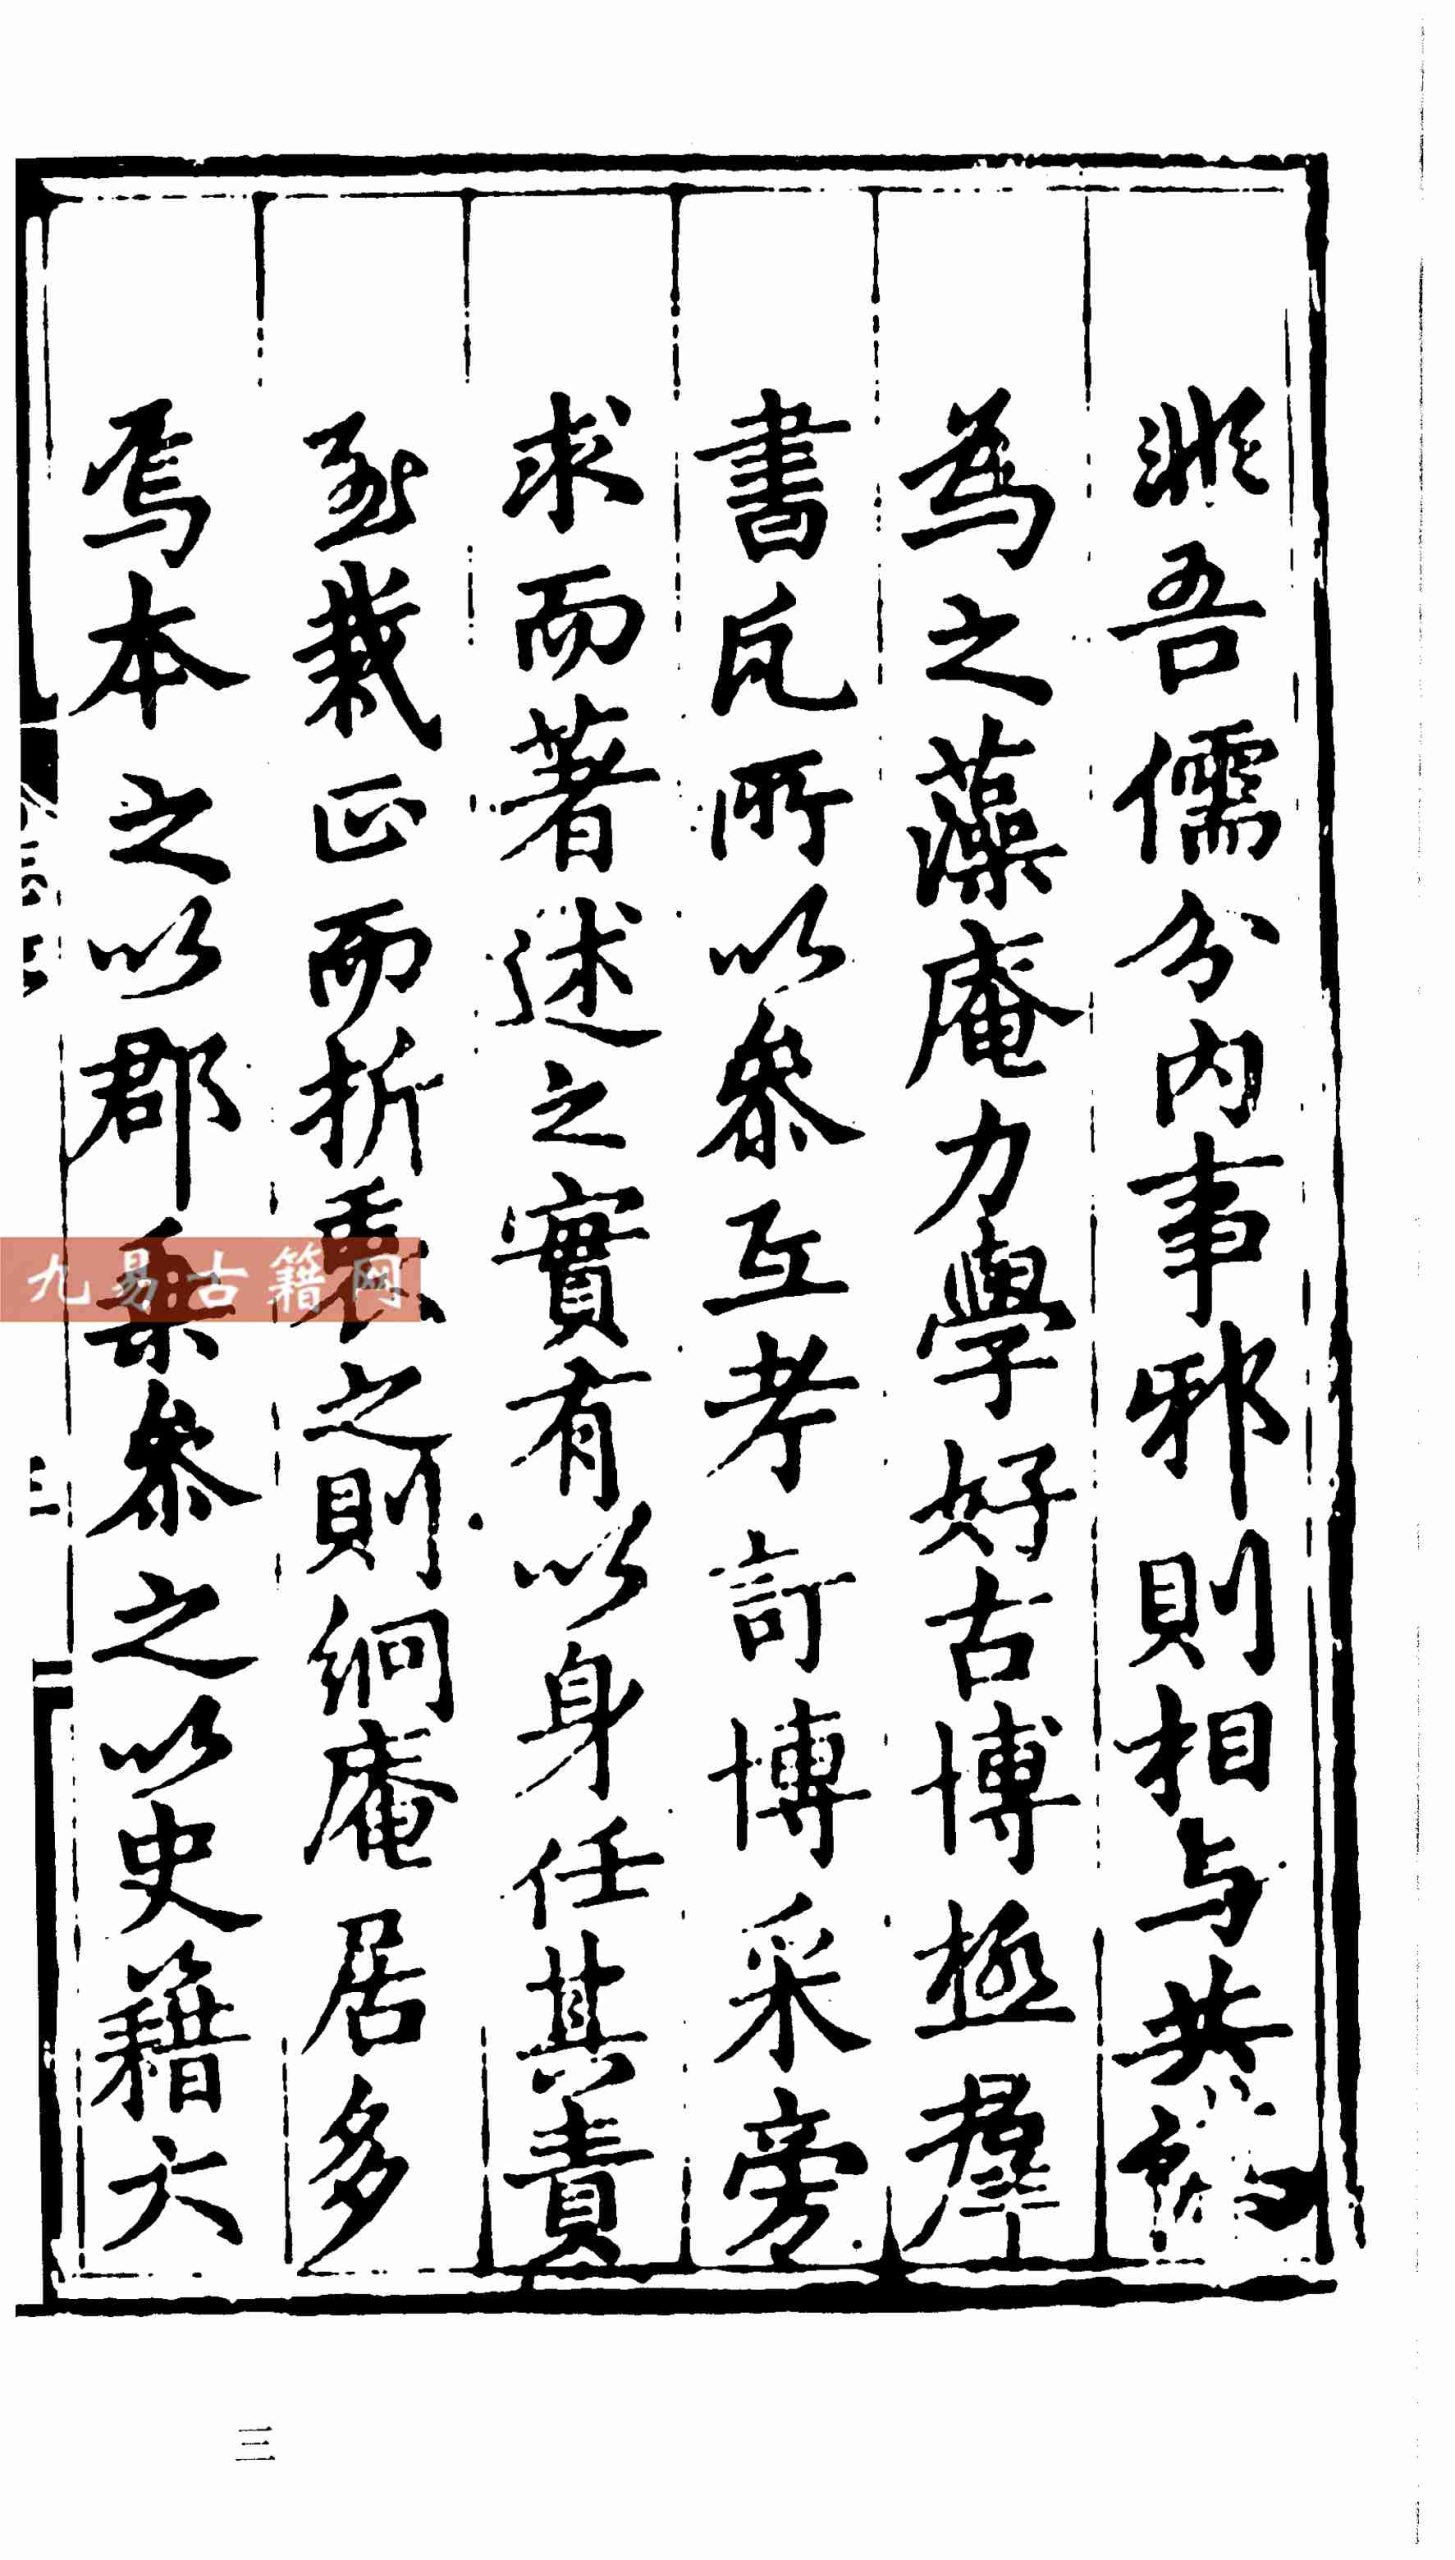 非吾儒分内事邪則相与共
為之藻庵力學好古博極羣
書凡所以叅互考訂博采旁
求而著述之實有以身任其責
至裁正而折衷之則絅庵居多
焉本之以郡乗叅之以史籍六
九易古籍网
三